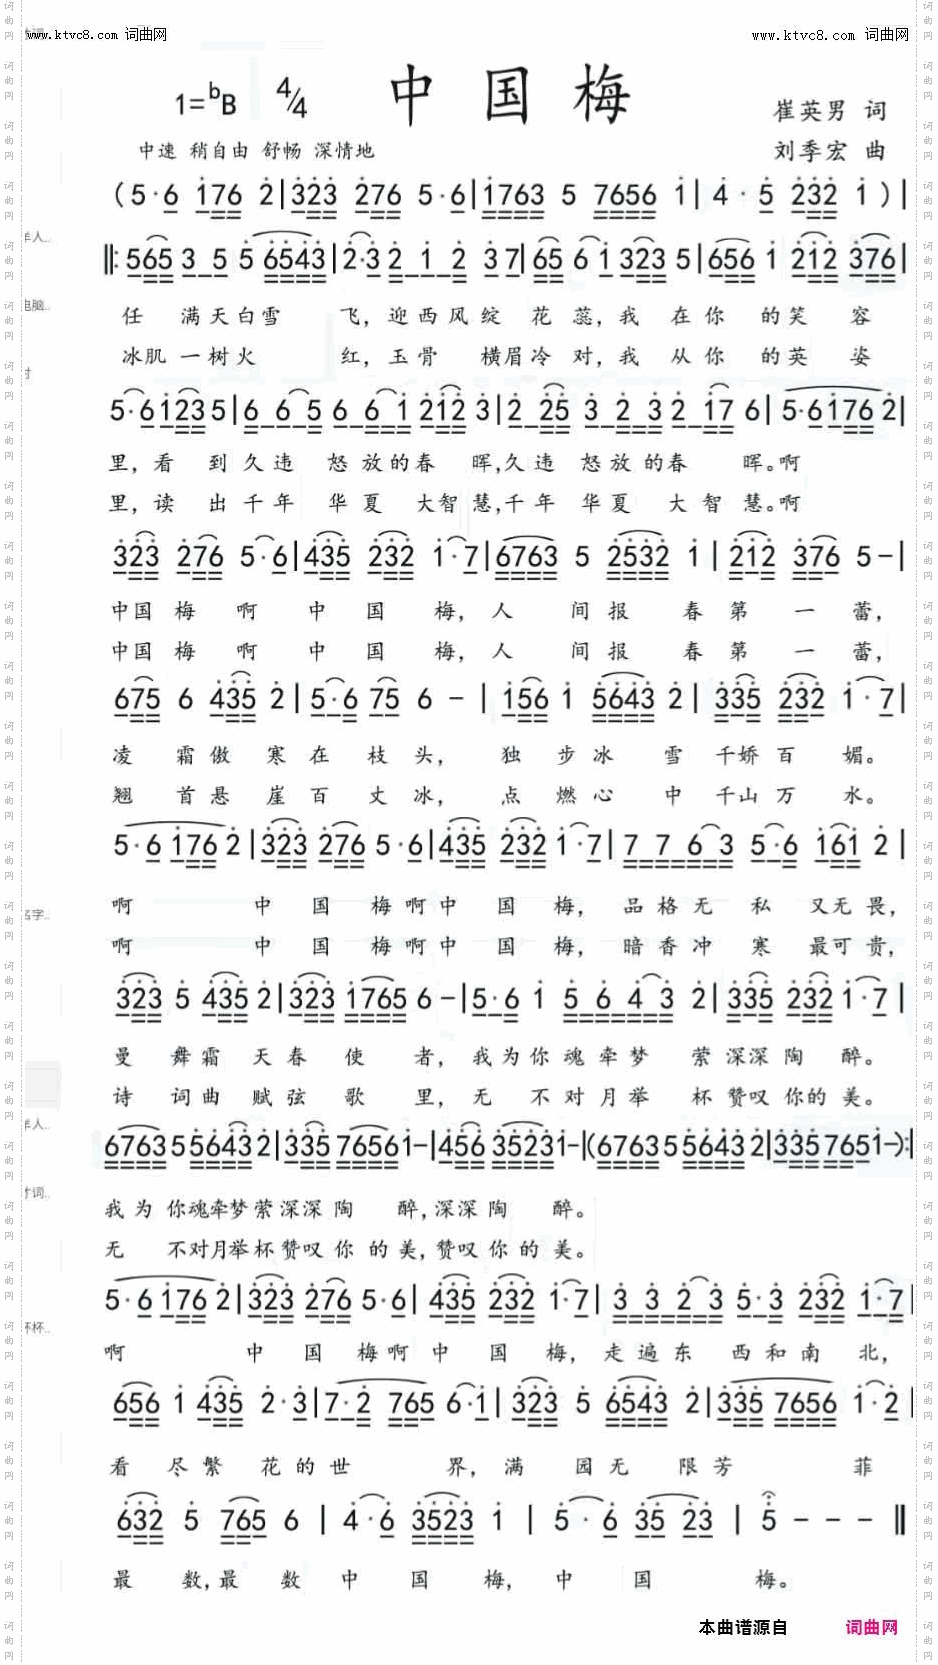 www.ktvc8.com 词曲网 www.ktvc8.com 词曲网
1=bB 4/4 中国梅 崔英男 词
中速 稍自由 舒畅 深情地 刘季宏 曲
(5·6 176 2|323 276 5·6|1763 5 7656 1|4·5 232 1)|
‖:565 3 5 5 6543|2·3 2 1 2 3 7|65 6 1 323 5|656 1 212 376|
任 满天白雪 飞, 迎西风绽 花蕊,我 在你 的笑 容
冰肌一树火 红, 玉骨 横眉冷对,我 从你 的英 姿
5·6 123 5|6 6 5 6 6 1 212 3|2 25 3 2 3 2 17 6|5·6 176 2|
里, 看 到久违 怒放的春 晖,久违 怒放的春 晖。啊
里, 读 出千年 华夏 大智慧,千年 华夏 大智慧。啊
323 276 5·6|435 232 1·7|6763 5 2532 1|212 376 5-|
中国 梅 啊 中 国 梅, 人 间报 春第 一 蕾,
中国 梅 啊 中 国 梅, 人 间报 春第 一 蕾,
675 6 435 2|5·6 75 6-|156 1 5643 2|335 232 1·7|
凌 霜傲 寒在 枝头, 独 步冰 雪 千娇百 媚。
翘 首悬 崖百 丈冰, 点 燃心 中 千山万 水。
5·6 176 2|323 276 5·6|435 232 1·7|7 7 6 3 5·6 161 2|
啊 中 国 梅啊中 国 梅, 品格无 私 又无畏,
啊 中 国 梅啊中 国 梅, 暗香冲 寒 最可贵,
323 5 435 2|323 1765 6-|5·6 1 5 6 4 3 2|335 232 1·7|
曼 舞霜 天春 使 者, 我为你魂牵梦 萦深深陶 醉。
诗 词曲 赋弦 歌 里, 无 不对月举 杯赞叹你的美。
6763 5 5643 2|335 7656 1-|456 3523 1-|(6763 5 5643 2|335 765 1-):‖
我为 你魂牵梦萦深深陶 醉,深深陶 醉。
无 不对月举杯赞叹你的美,赞叹你的美。
5·6 176 2|323 276 5·6|435 232 1·7|3 3 2 3 5·3 232 1·7|
啊 中 国 梅啊中 国 梅, 走遍东 西和南 北,
656 1 435 2·3|7·2 765 6·1|323 5 6543 2|335 7656 1·2|
看 尽繁 花的世 界, 满 园无 限芳 菲
632 5 765 6|4·6 3523 1|5·6 35 23|5---‖
最 数,最 数 中 国 梅, 中 国 梅。
本曲谱源自 词曲网